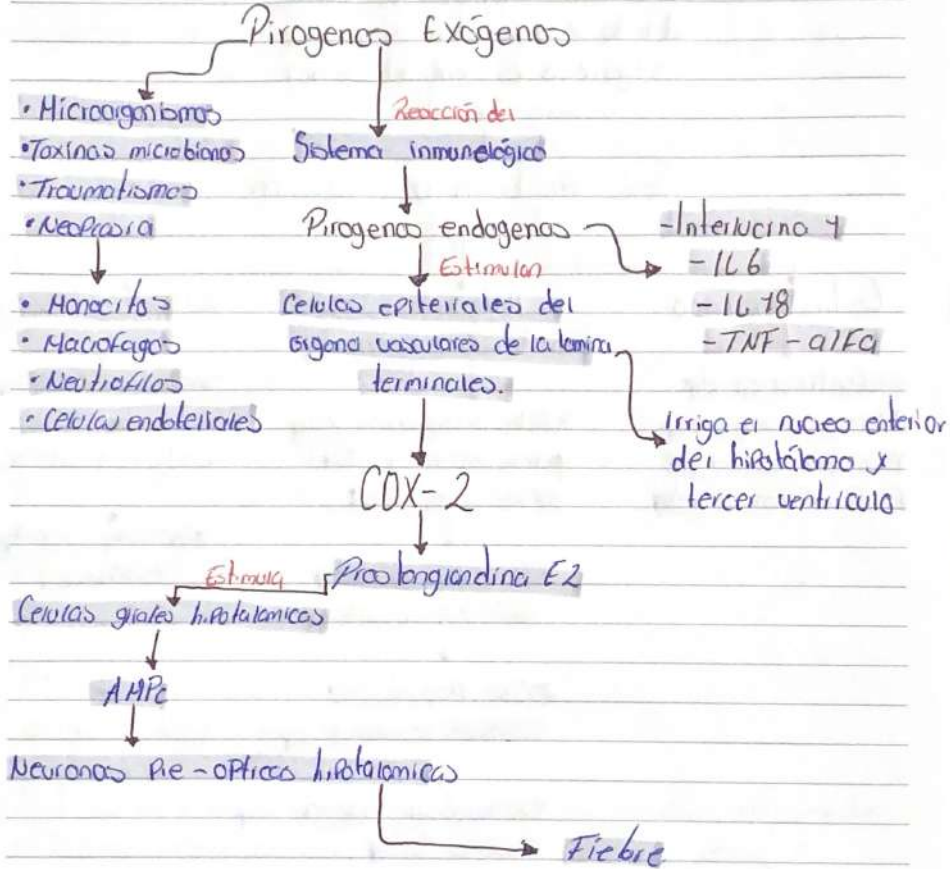 Pirogenos Exógenos
• Microorganismos
• Toxinas microbianas
• Traumatismos
• Neoplasia
• Monocitos
• Macrofagos
• Neutrofilos
• Celulas endoteriales
Reacción del
Sistema inmunológico
Pirogenos endogenos
- Interlucina 1
- IL6
- IL 18
- TNF - alFa
Estimulan
Celulas epiteriales del
organo vasculares de la lamina
terminales.
Irriga el nucleo enterior
del hipotálamo y
tercer ventriculo
COX-2
Prostanglandina E2
Estimula
Celulas gliales hipotalamicas
AMPc
Neuronas Pre-opticas hipotalamicas
Fiebre